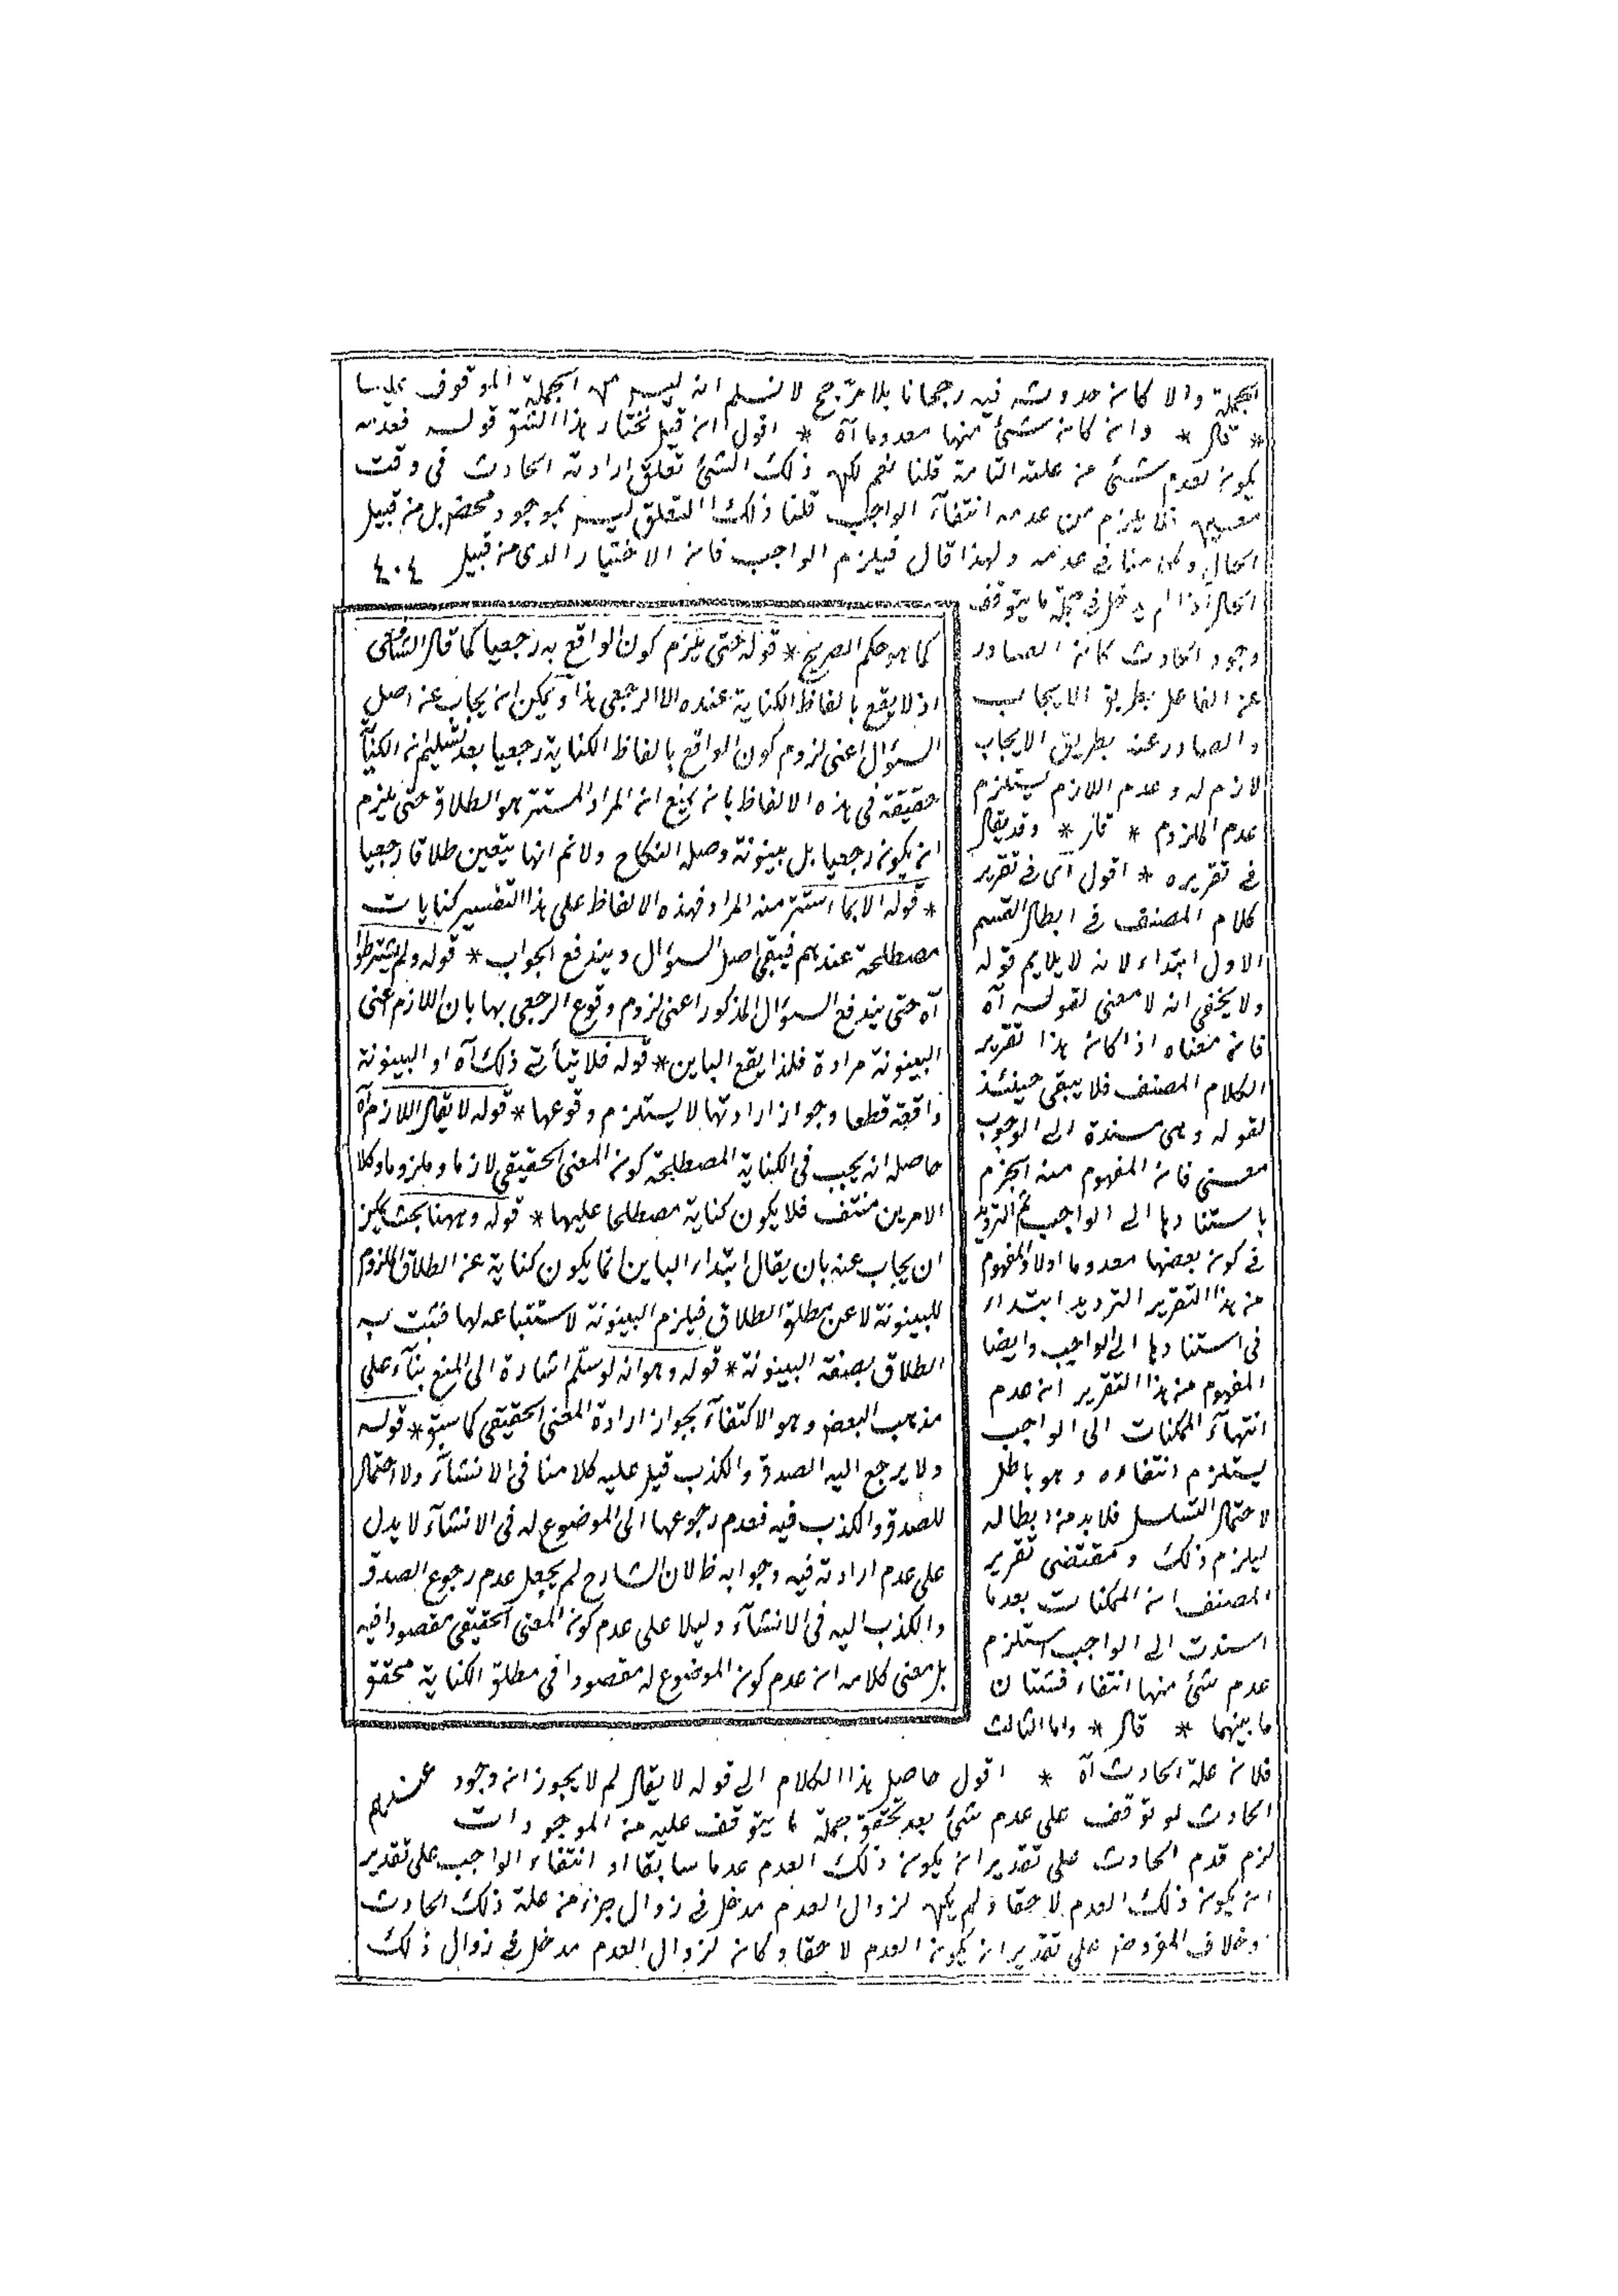 الجملة والا كان حدوثه فيه رجحانا بلا مرجح لا نسلم انه ليس من الجملة الموقوف عليها
* قال * وان كان شئ منها معدوما آه * اقول ان قيل نختار هذا الشق قوله فعدمه
يكون لعدم شئ عن علته التامة قلنا نعم لكن ذلك الشئ تعلق ارادته الحادث فى وقت
معين فلا يلزم من عدمه انتفاء الواجب قلنا ذلك التعلق ليس بموجود محض بل من قبيل
الحال وكلامنا فى عدمه ولهذا قال فيلزم الواجب فان الاختيار الذى من قبيل ٤٠٤
الحال اذا لم يدخل فى جملة ما يتوقف
وجود الحادث كان الصادر
عن الفاعل بطريق الايجاب
والصادر عنه بطريق الايجاب
لازم له وعدم اللازم يستلزم
عدم الملزوم * قال * وقد يقال
فى تقريره * اقول اى فى تقرير
كلام المصنف فى ابطال القسم
الاول ابتداء لانه لا يلايم قوله
ولا يخفى انه لا معنى لقوله آه
فان معناه اذا كان هذا تقرير
الكلام المصنف فلا يبقى حينئذ
لقوله وهى مسندة الى الوجوب
معنى فان المفهوم منه الجزم
باستنادها الى الواجب ثم الترديد
فى كون بعضها معدوما اولا والمفهوم
من هذا التقرير الترديد ابتداء
فى استنادها الى الواجب وايضا
المفهوم من هذا التقرير ان عدم
انتهاء الممكنات الى الواجب
يستلزم انتفاءه وهو باطل
لاحتمال التسلسل فلا بد من ابطاله
ليلزم ذلك ومقتضى تقرير
المصنف ان الممكنات بعدما
اسندت الى الواجب استلزم
عدم شئ منها انتفاء فشتان
ما بينهما * قال * واما الثالث
فلان علة الحادث آه * اقول حاصل هذا الكلام الى قوله لا يقال لم لا يجوز ان وجود
الحادث لو توقف على عدم شئ بعد تحقق جملة ما يتوقف عليه من الموجودات
لزم قدم الحادث على تقدير ان يكون ذلك العدم عدما سابقا او انتفاء الواجب على تقدير
ان يكون ذلك العدم لاحقا ولم يكن لزوال العدم مدخل فى زوال جزء من علة ذلك الحادث
وخلاف المفروض على تقدير ان يكون العدم لاحقا وكان لزوال العدم مدخل فى زوال ذلك
كما هو حكم الصريح * قوله حتى يلزم كون الواقع به رجعيا كما قال الشافعى
اذ لا يقع بالفاظ الكناية عنده الا الرجعى هذا ويمكن ان يجاب عن اصل
السؤال اعنى لزوم كون الواقع بالفاظ الكناية رجعيا بعد تسليم ان الكناية
حقيقة فى هذه الالفاظ بان يمنع ان المراد المستتر هو الطلاق حتى يلزم
ان يكون رجعيا بل بينونة وصلة النكاح ولا نم انها يتعين طلاقا رجعيا
* قوله الا بما استتر منه المراد فهذه الالفاظ على هذا التفسير كنايات
مصطلحة عندهم فيبقى اصل السؤال ويندفع الجواب * قوله ولم يشترطوا
آه حتى يندفع السؤال المذكور اعنى لزوم وقوع الرجعى بها بان اللازم اعنى
البينونة مرادة فلذا يقع الباين * قوله فلا يتأتى ذلك آه او البينونة
واقعة قطعا وجواز ارادتها لا يستلزم وقوعها * قوله لا يقال اللازم آه
حاصله انه يجب فى الكناية المصطلحة كون المعنى الحقيقى لازما وملزوما وكلا
الامرين منتف فلا يكون كناية مصطلحا عليها * قوله وههنا بحث يمكن
ان يجاب عنه بان يقال ابتداء الباين انما يكون كناية عن الطلاق الملزوم
للبينونة لا عن مطلق الطلاق فيلزم البينونة لاستتباعه لها فثبت به
الطلاق بصفة البينونة * قوله وهو انه لو سلم اشارة الى المنع بناء على
مذهب البعض وهو الاكتفاء بجواز ارادة المعنى الحقيقى كما سبق * قوله
ولا يرجع اليه الصدق والكذب قيل عليه كلامنا فى الانشاء ولا احتمال
للصدق والكذب فيه فعدم رجوعها الى الموضوع له فى الانشاء لا يدل
على عدم ارادته فيه وجوابه ظ لان الشارح لم يجعل عدم رجوع الصدق
والكذب اليه فى الانشاء دليلا على عدم كون المعنى الحقيقى مقصودا فيه
بل معنى كلامه ان عدم كون الموضوع له مقصودا فى مطلق الكناية محقق
عندهم